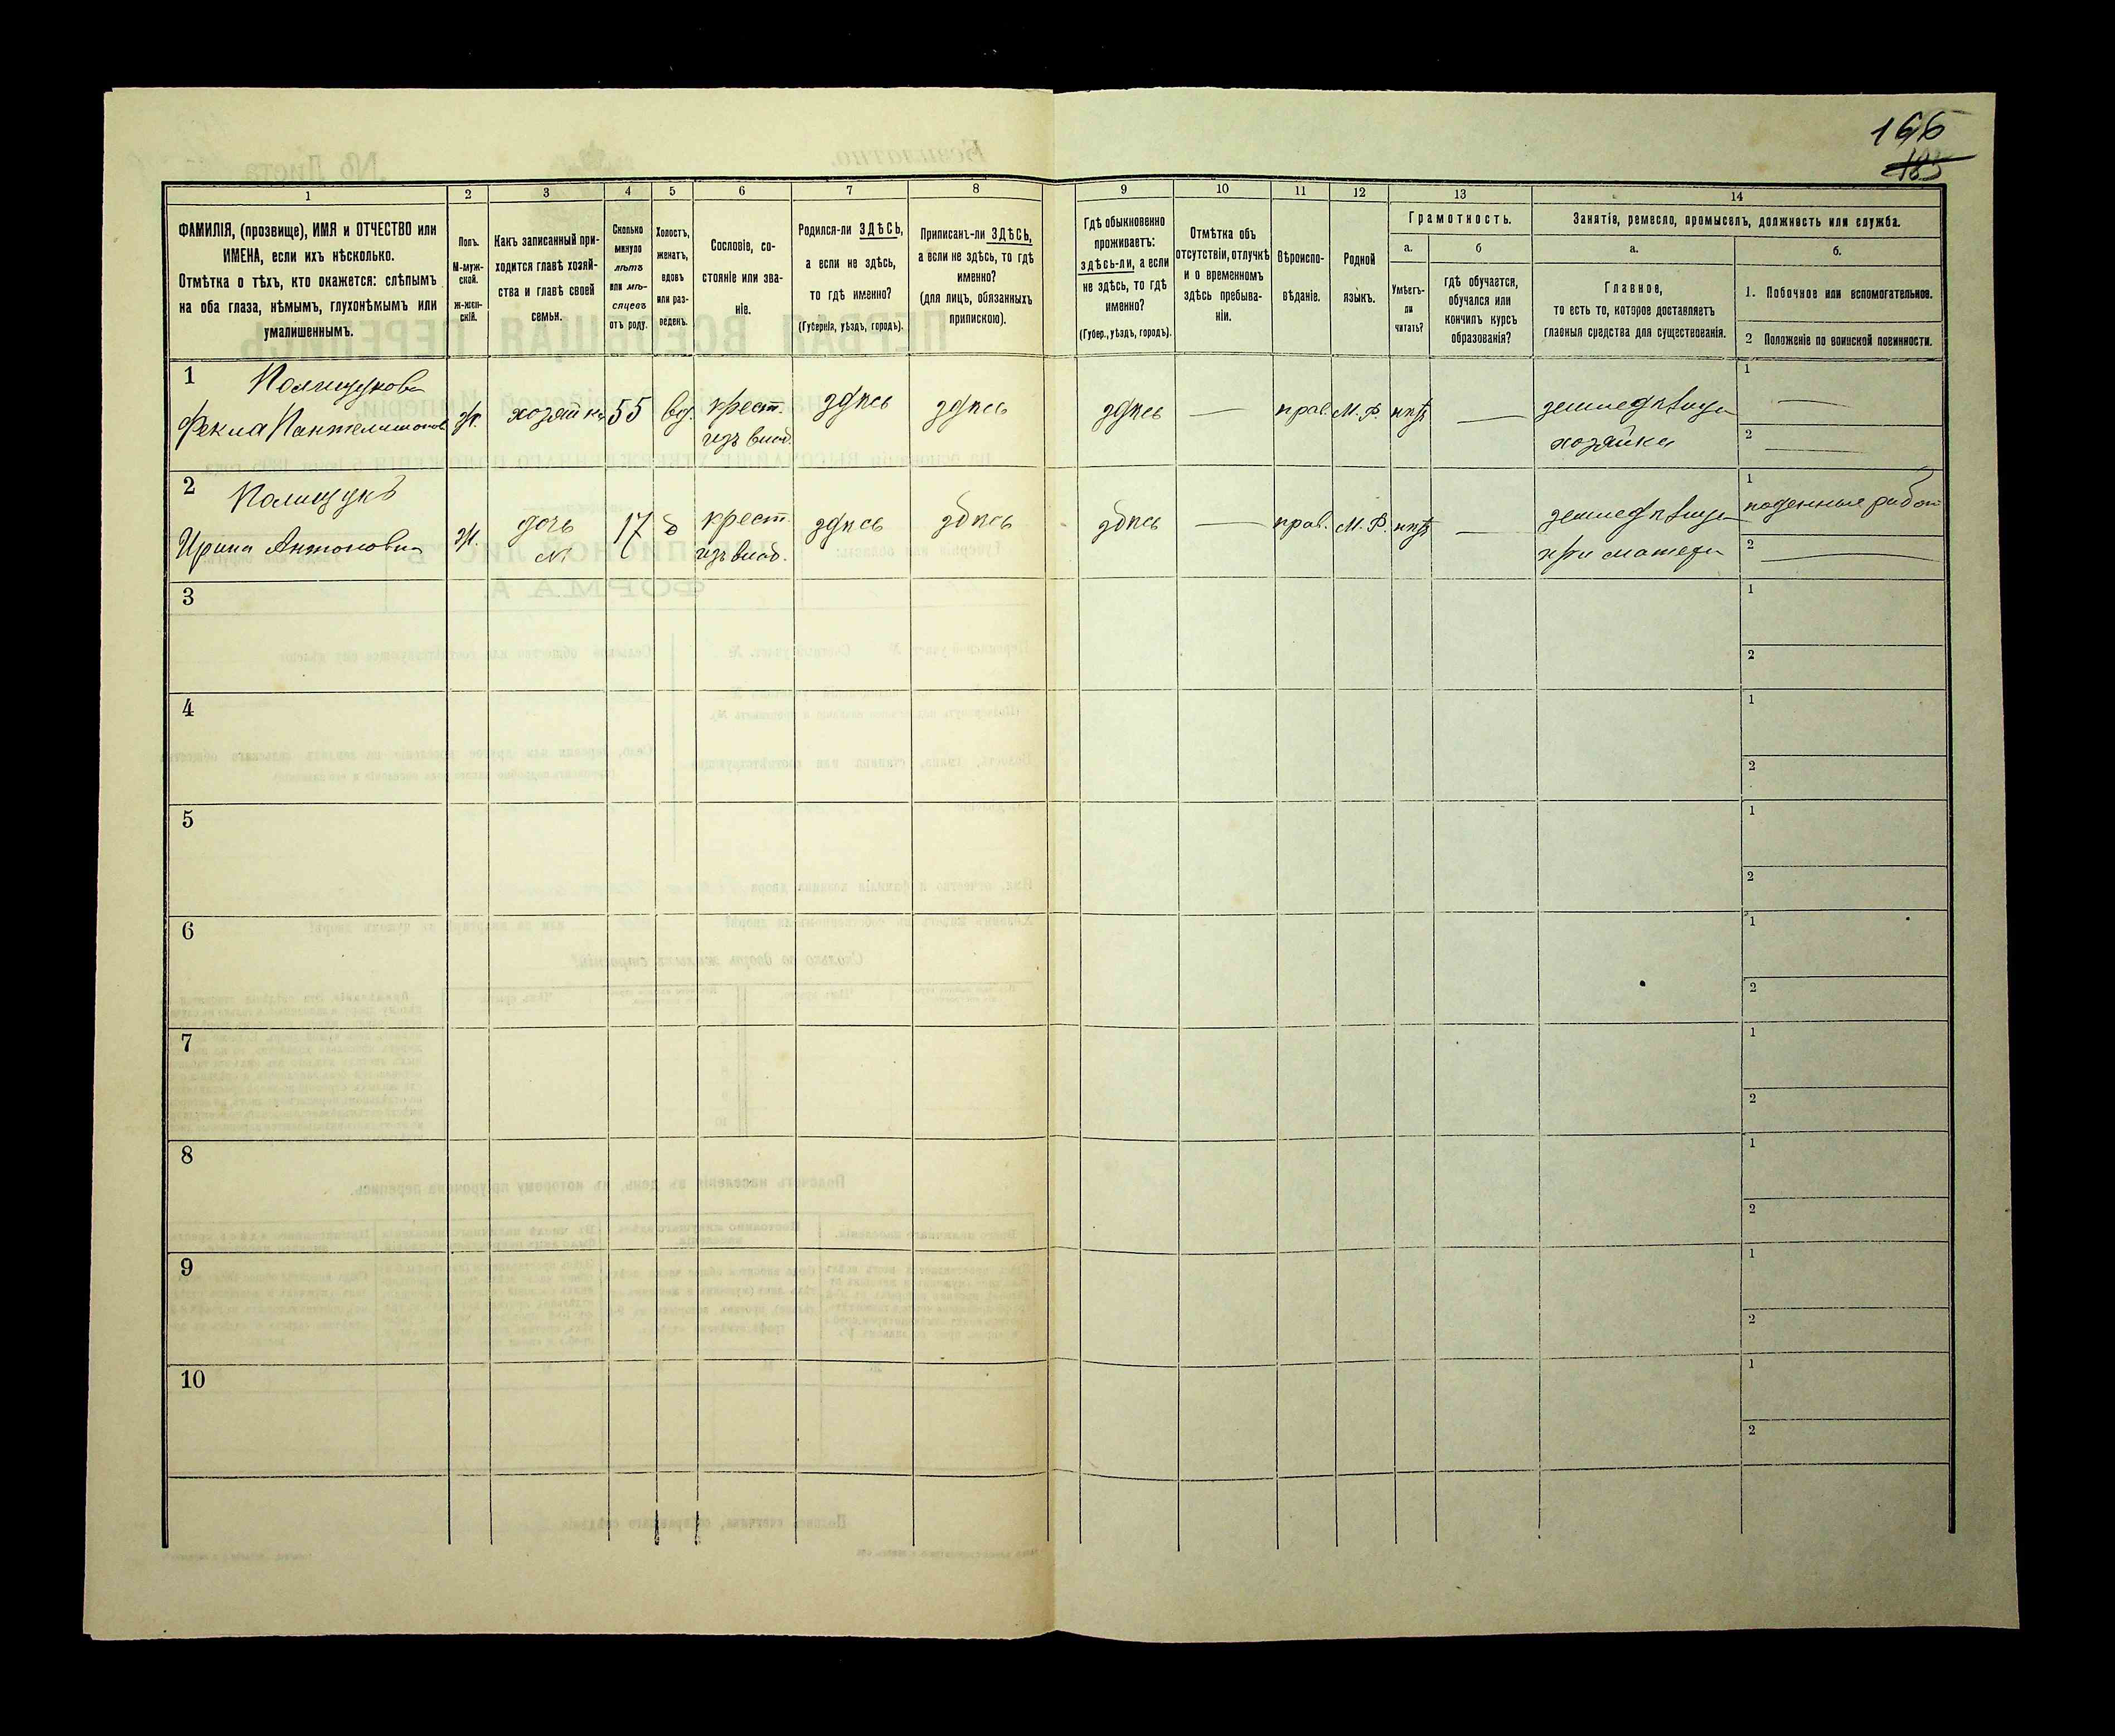 166
183
1
2
3
4
5
6
7
8
9
10
11
12
13
14
ФАМИЛІЯ, (прозвище), ИМЯ и ОТЧЕСТВО или
ИМЕНА, если ихъ нѣсколько.
Отмѣтка о тѣхъ, кто окажется: слѣпымъ
на оба глаза, нѣмымъ, глухонѣмымъ или
умалишеннымъ.
Полъ.
М-муж-
ской.
Ж-жен-
скій.
Какъ записанный при-
ходится главѣ хозяй-
ства и главѣ своей
семьи.
Сколько
минуло
лѣтъ
или мѣ-
сяцевъ
отъ роду.
Холостъ,
женатъ,
вдовъ
или раз-
веденъ.
Сословіе, со-
стояніе или зва-
ніе.
Родился-ли ЗДѢСЬ,
а если не здѣсь,
то гдѣ именно?
(Губернія, уѣздъ, городъ).
Приписанъ-ли ЗДѢСЬ,
а если не здѣсь, то гдѣ
именно?
(для лицъ, обязанныхъ
припискою).
Гдѣ обыкновенно
проживаетъ:
здѣсь-ли, а если
не здѣсь, то гдѣ
именно?
(Губер., уѣздъ, городъ).
Отмѣтка объ
отсутствіи, отлучкѣ
и о временномъ
здѣсь пребыва-
ніи.
Вѣроиспо-
вѣданіе.
Родной
языкъ.
Грамотность.
а.
Умѣетъ-
ли
читать?
б
гдѣ обучается,
обучался или
кончилъ курсъ
образованія?
Занятіе, ремесло, промыселъ, должность или служба.
а.
Главное,
то есть то, которое доставляетъ
главныя средства для существованія.
б.
1. Побочное или вспомогательное.
2 Положеніе по воинской повинности.
1
Полищукова
Фекла Пантелимонова
ж.
хозяйка
55
вд.
крест.
изъ влад.
здѣсь
здѣсь
здѣсь
—
прав.
М. Р.
нѣтъ
—
земледѣлица
хозяйка
1
—
2
—
2
Полищукъ
Ирина Антоновна
ж.
дочь
№1
17
д
крест.
изъ влад.
здѣсь
здѣсь
здѣсь
—
прав.
М. Р.
нѣтъ
—
земледѣлица
при матери
1
поденные работ
2
—
3
1
2
4
1
2
5
1
2
6
1
2
7
1
2
8
1
2
9
1
2
10
1
2